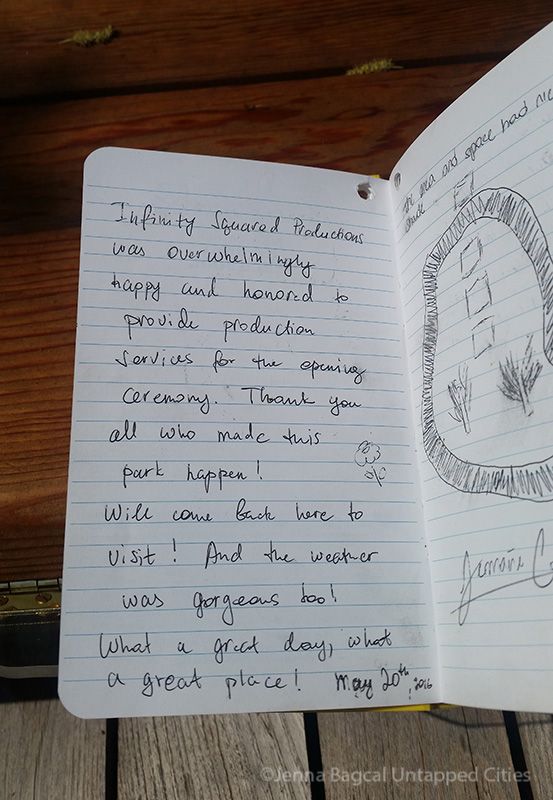 Infinity Squared Productions
was overwhelmingly
happy and honored to
provide production
services for the opening
ceremony. Thank you
all who made this
park happen!
Will come back here to
visit! And the weather
was gorgeous too!
What a great day, what
a great place!
May 20th, 2016
area and space had
©Jenna Bagcal Untapped Cities